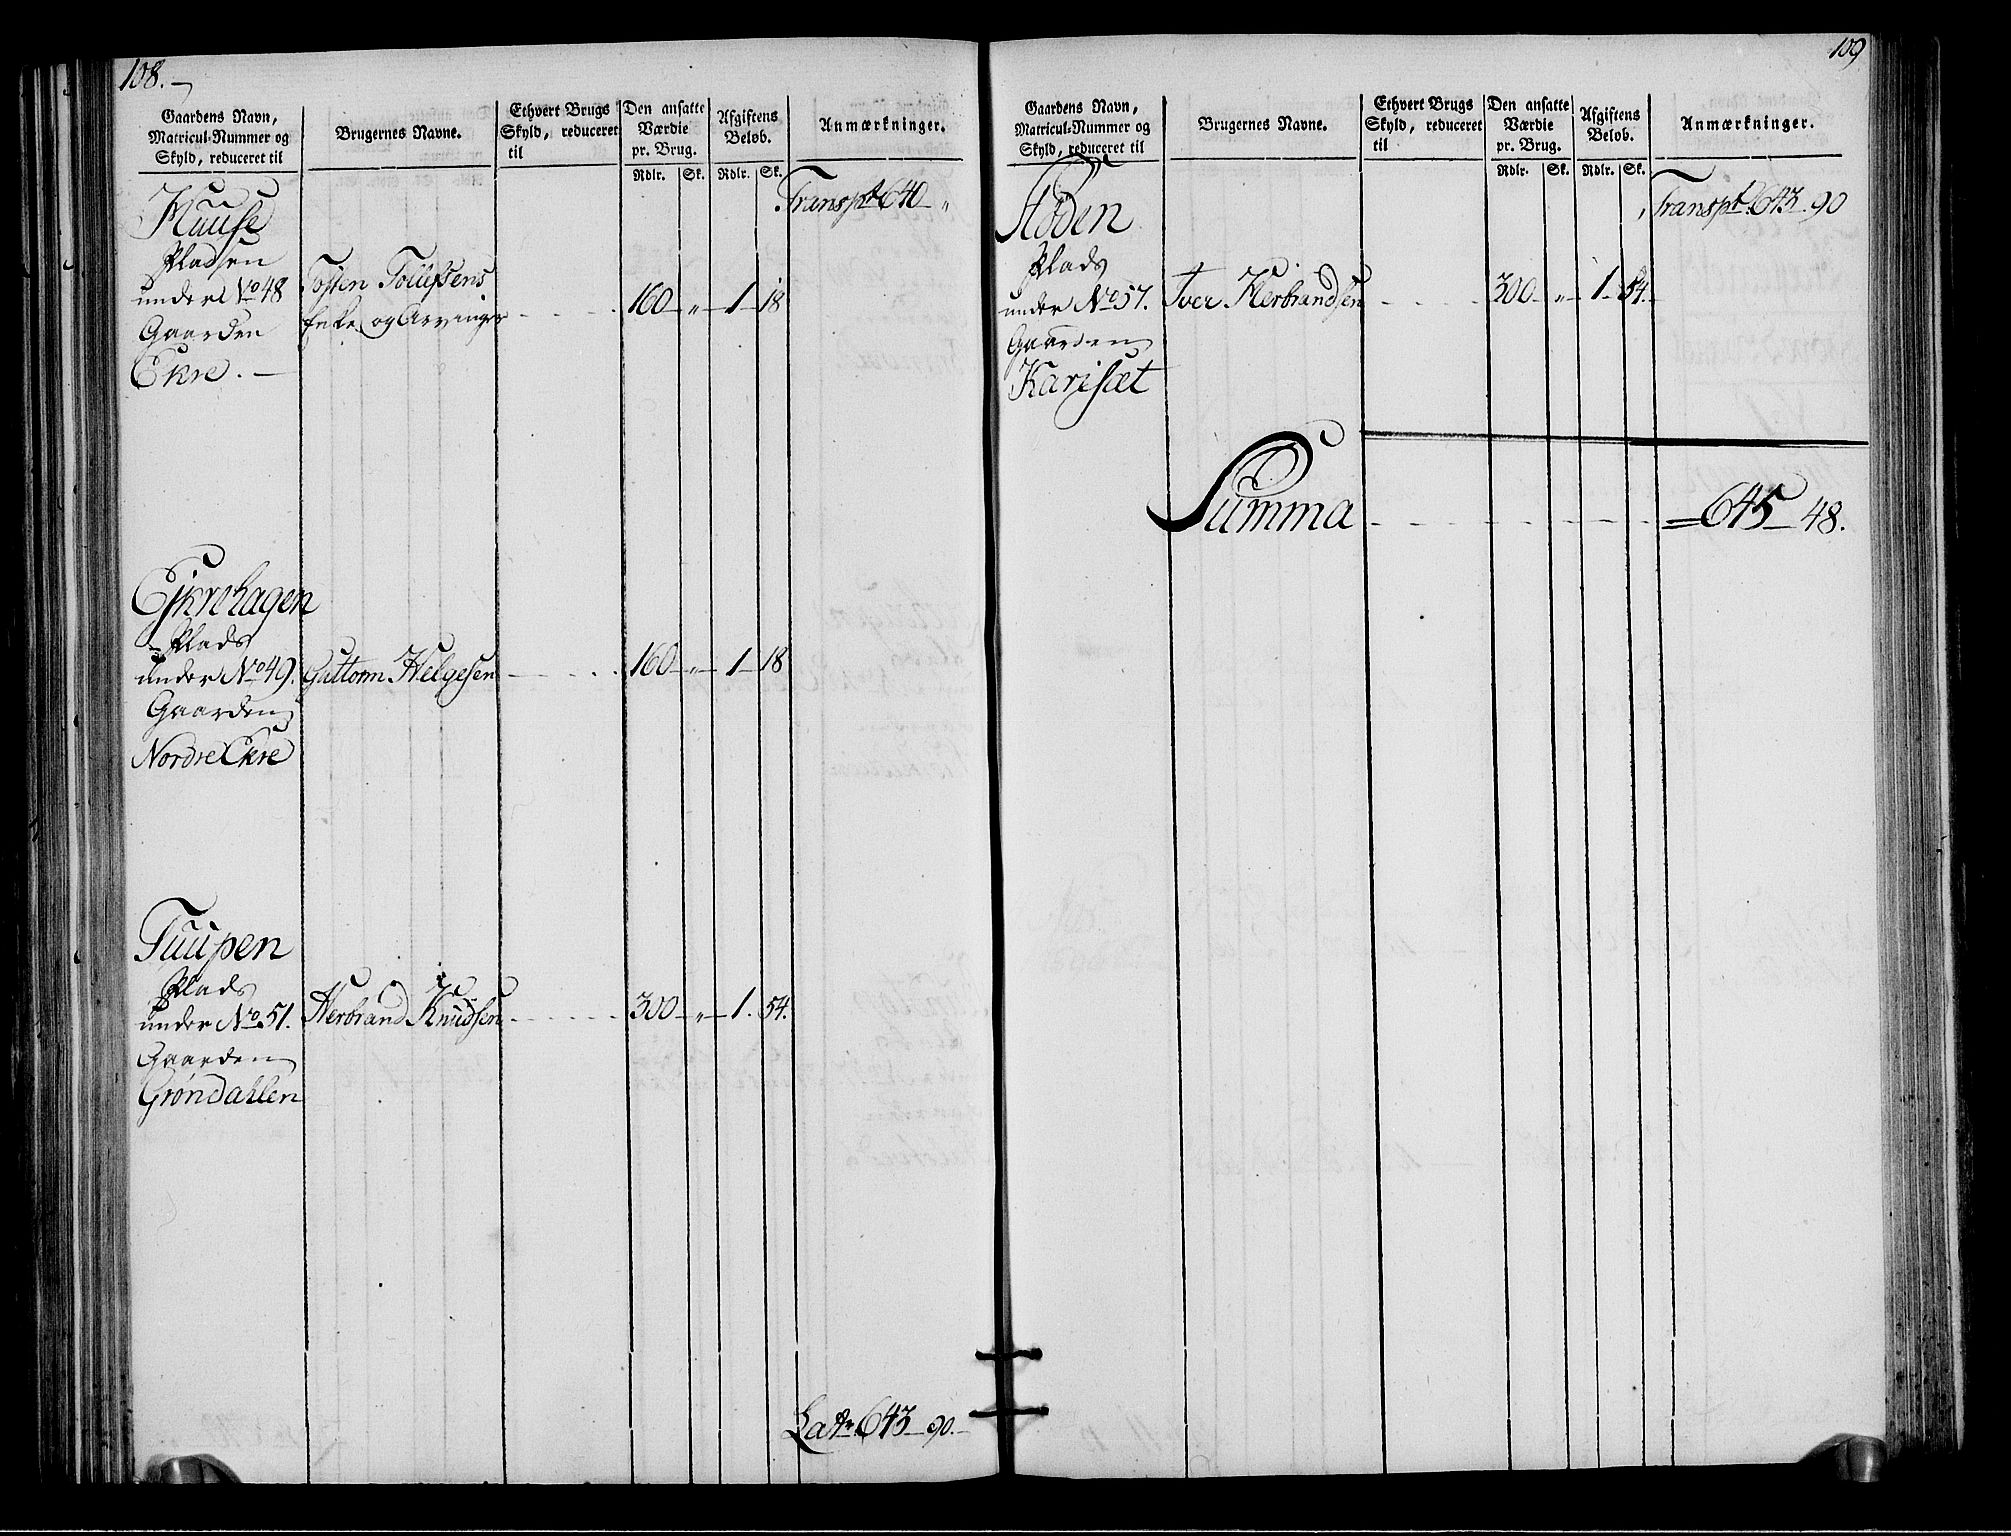 108.
Gaardens Navn,
Matricul-Nummer og
Skyld, reduceret til
Brugernes Navne.
Ethvert Brugs
Skyld, reduceret
til
Den ansatte
Værdie
pr. Brug.
Rdlr. Sk.
Afgiftens
Beløb.
Rdlr. Sk.
Anmærkninger.
Transpt 640 "
Huuse
Pladsen
under No 48
Gaarden
Ekre.
Tosten Tollefsens
Enke og Arvinger
160 " 1 18
Ejkrehagen
Plads
under No 49.
Gaarden
Nordre Ekre
Guttorm Helgesen
160 " 1 18
Tuupen
Plads
under No 51.
Gaarden
Grøndahlen
Herbrand Knudsen
300 " 1. 54.
Lat. 643 90.
109
Gaardens Navn,
Matricul-Nummer og
Skyld, reduceret til
Brugernes Navne.
Ethvert Brugs
Skyld, reduceret
til
Den ansatte
Værdie
pr. Brug.
Rdlr. Sk.
Afgiftens
Beløb.
Rdlr. Sk.
Anmærkninger.
Transpt. 643 90
Plads
under No 57.
Gaarden
Karisæt
Iver Herbrandsen
300 " 1 54.
Summa
645 48.